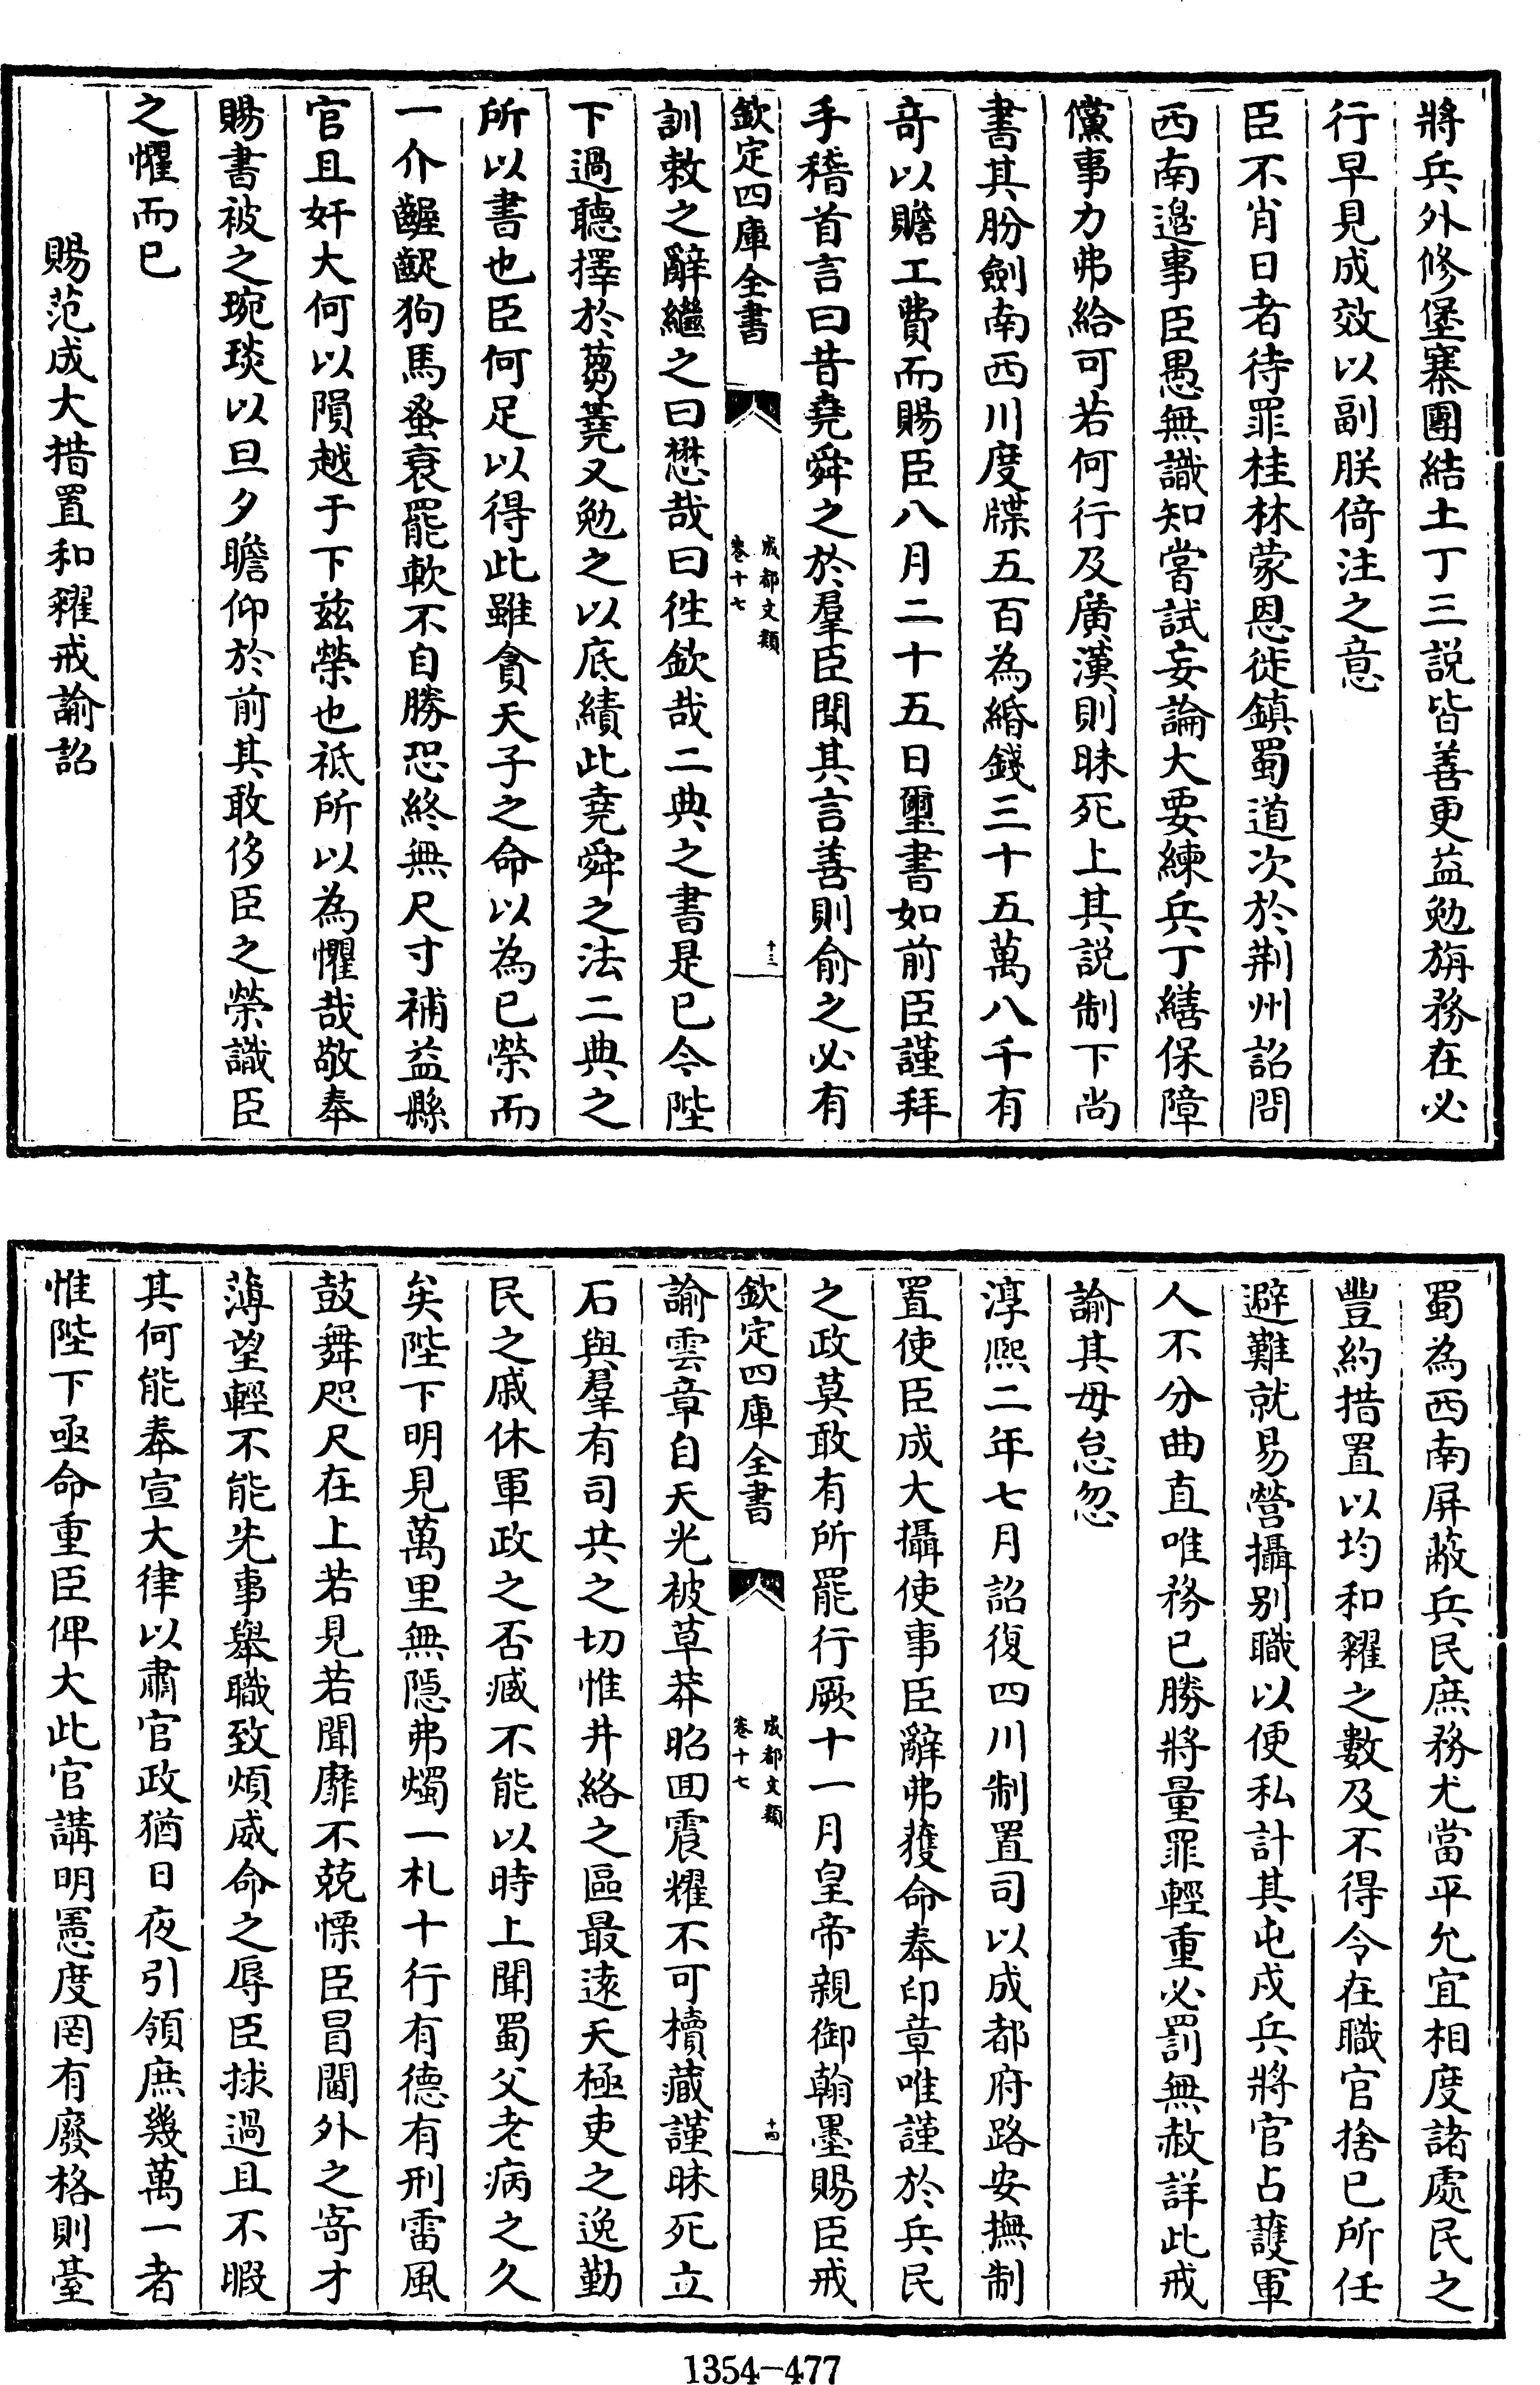 將兵外修堡寨團結土丁三説皆善更益勉旃務在必
行早見成效以副朕倚注之意
臣不肖日者待罪桂林蒙恩徙鎮蜀道次於荆州詔問
西南邉事臣愚無識知嘗試妄論大要練兵丁繕保障
儻事力弗給可若何行及廣漢則昧死上其説制下尚
書其肦劍南西川度牒五百為緡錢三十五萬八千有
奇以贍工費而賜臣八月二十五日璽書如前臣謹拜
手稽首言曰昔堯舜之於羣臣聞其言善則俞之必有
欽定四庫全書
成都文類
卷十七
十三
訓敕之辭繼之曰懋哉曰徃欽哉二典之書是已今陛
下過聽擇於蒭蕘又勉之以底績此堯舜之法二典之
所以書也臣何足以得此雖貪天子之命以為已榮而
一介齷齪狗馬蚤衰罷軟不自勝恐終無尺寸補益縣
官且奸大何以隕越于下兹榮也祗所以為懼哉敬奉
賜書被之琬琰以旦夕瞻仰於前其敢侈臣之榮識臣
之懼而已
賜范成大措置和糴戒諭詔
蜀為西南屏蔽兵民庶務尤當平允宜相度諸處民之
豐約措置以均和糴之數及不得令在職官捨已所任
避難就易營攝别職以便私計其屯戍兵將官占護軍
人不分曲直唯務已勝將量罪輕重必罰無赦詳此戒
諭其毋怠忽
淳熙二年七月詔復四川制置司以成都府路安撫制
置使臣成大攝使事臣辭弗獲命奉印章唯謹於兵民
之政莫敢有所罷行厥十一月皇帝親御翰墨賜臣戒
欽定四庫全書
成都文類
卷十七
十四
諭雲章自天光被草莽昭囬震耀不可櫝藏謹昧死立
石與羣有司共之切惟井絡之區最逺天極吏之逸勤
民之戚休軍政之否臧不能以時上聞蜀父老病之久
矣陛下明見萬里無隱弗燭一札十行有德有刑雷風
鼓舞咫尺在上若見若聞靡不兢慄臣冒閫外之寄才
薄望輕不能先事舉職致煩威命之辱臣捄過且不暇
其何能奉宣大律以肅官政猶日夜引領庶幾萬一者
惟陛下亟命重臣俾大此官講明憲度罔有廢格則臺
1354-477